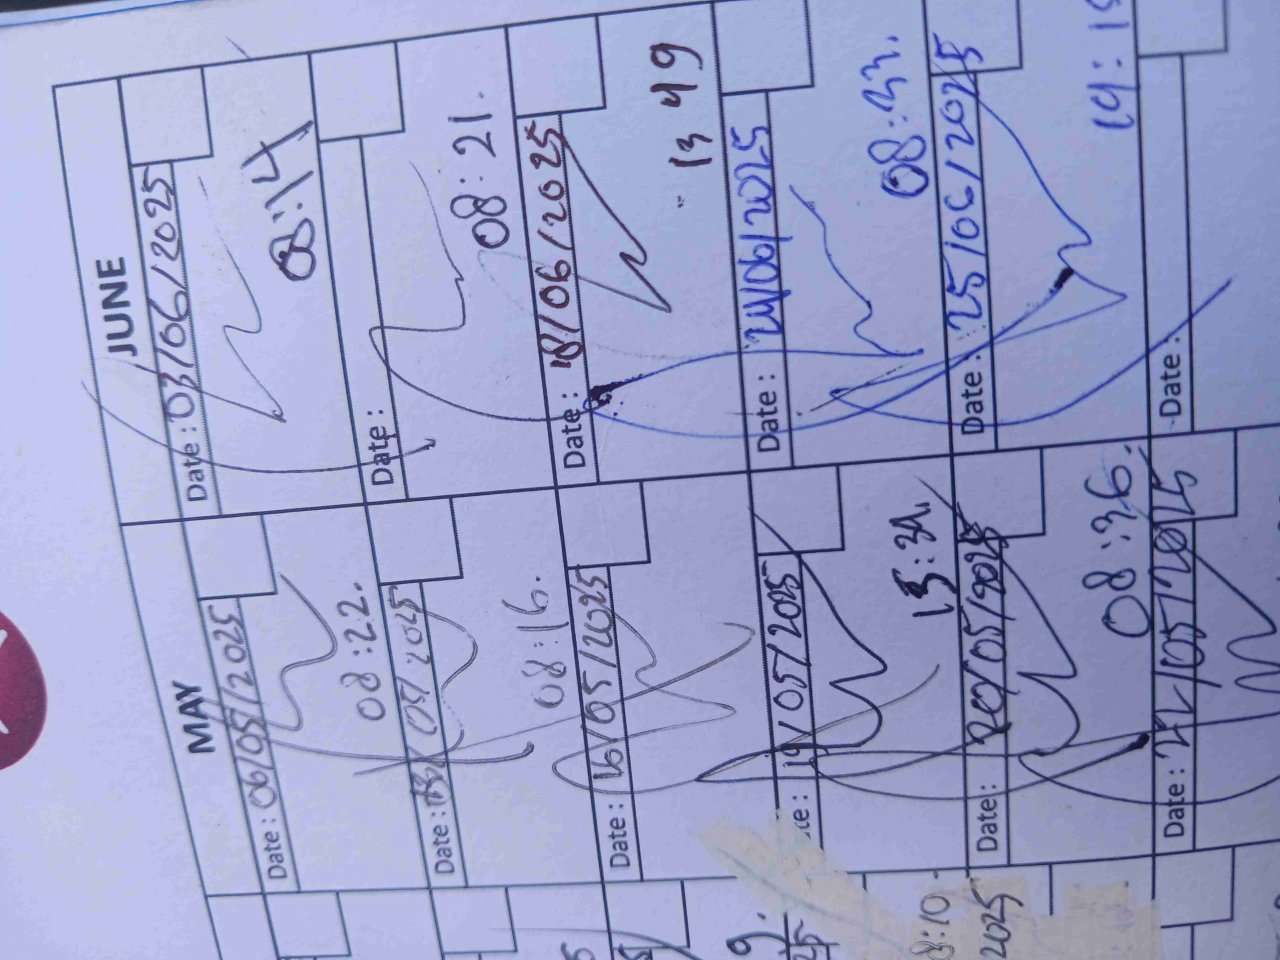 JUNE
Date : 03/06/2025
08:14
Date :
08:21.
Date : 18/06/2025
13 49
Date : 24/06/2025
08:33.
Date : 25/06/2025
Date :
MAY
Date : 06/05/2025
08:22.
Date :
08:16.
Date : 16/05/2025
Date : 19/05/2025
Date : 20/05/2025
08:36.
Date :
8:10.
2025